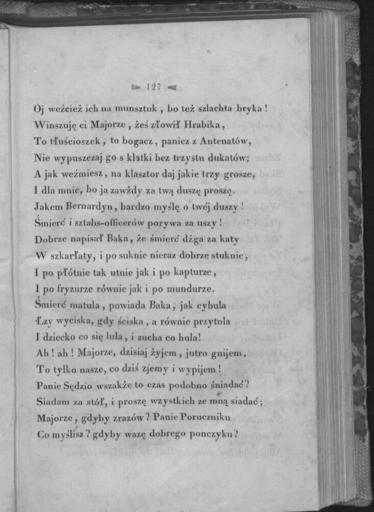 127
Oj weźcież ich na munsztuk, bo też szlachta bryka!
Winszuję ci Majorze, żeś złowił Hrabika,
To tłuścioszek, to bogacz, panicz z Antenatów,
Nie wypuszczaj go s klatki bez trzystu dukatów;
A jak weźmiesz, na klasztor daj jakie trzy grosze,
I dla mnie, bo ja zawżdy za twą duszę proszę.
Jakem Bernardyn, bardzo myślę o twéj duszy!
Śmierć i sztabs-officerów porywa za uszy!
Dobrze napisał Baka, że śmierć dźga za katy
W szkarłaty, i po suknie nieraz dobrze stuknie,
I po płótnie tak utnie jak i po kapturze,
I po fryzurze równie jak i po mundurze.
Śmierć matula, powiada Baka, jak cybula
Łzy wyciska, gdy ściska, a równie przytula
I dziecko co się lula, i zucha co hula!
Ah! ah! Majorze, dzisiaj żyjem, jutro gnijem,
To tylko nasze, co dziś zjemy i wypijem!
Panie Sędzio wszakże to czas podobno śniadać?
Siadam za stół, i proszę wzystkich ze mną siadać;
Majorze, gdyby zrazów? Panie Poruczniku
Co myślisz? gdyby wazę dobrego ponczyku?